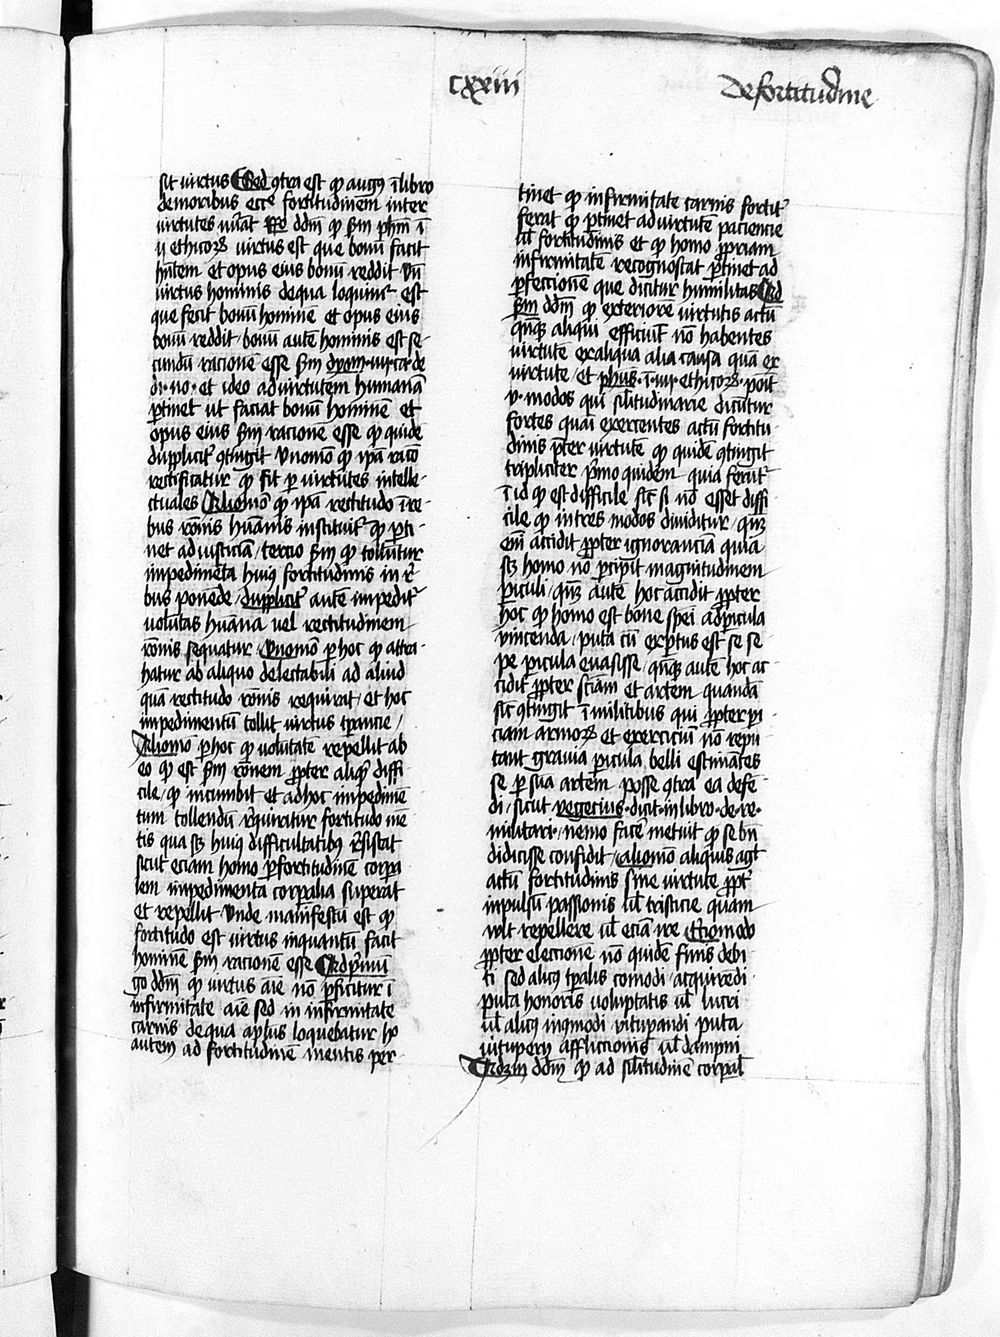 cxxiii
De fortitudine
sit virtus Sed ꝯtra est ꝙ augꝰ ī libro
de moribus ecce fortitudinem inter
virtutes nūāt Rō ddm̄ ꝙ sm̄ phm̄ ī
ii ethicoꝝ virtus est que bonū facit
hn̄tem et opus eius bonū reddit Vn̄
virtus hominis de qua loquimͬ est
que fecit bonū hominē et opus eius
bonū reddit · bonū autē hominis est se-
cundū racionē esse sm̄ dyoni · iiii · ca · de
di · no · et ideo ad virtutem humanā
ꝑtinet ut faciat bonū hominē et
opus eius sm̄ racionē esse ꝙ quidē
dupplicitͬ ꝯtingit Vnomō ꝙ ip̄a racō
rectificatur ꝙ fit ꝑ virtutes intelle-
ctuales Aliomō ꝙ ip̄a rectitudo ī re-
bus rōnis hūanis instituitͬ ꝙ ꝑti-
net ad iusticiā / tercio sm̄ ꝙ tollūtur
impedimēta huiꝰ fortitudinis in rͤ-
bus ponēde / dupplicitͬ autē impeditͬ
volūtas hūana vel rectitudinem
rōnis sequatur / Vnomō ꝑ hoc ꝙ attra-
hatur ab aliquo delectabili ad aliud
quā rectitudo rōnis requirat / et hoc
impedimentū tollit virtus tꝑancie /
Aliomō ꝑ hoc ꝙ volūtatē repellit ab
eo ꝙ est sm̄ rōnem ꝓpter aliqͣ diffi-
cile / ꝙ incumbit et ad hoc impedimē
tum tollendū rͤquiratur fortitudo mē
tis qua sꝫ huiꝰ difficultatibꝰ rͤsistat
sicut eciam homo ꝑ fortitudinē corꝑa
lem impedimenta corꝑalia superat
et repellit Vnde manifestū est ꝙ
fortitudo est virtus inquantū facit
hominē sm̄ racionē esse Ad pͥmū
go ddm̄ ꝙ virtus aīe nō ꝑficitur ī
infirmitate aīe sed in infirmitate
carnis de qua apl̄us loquebatur ho
autem ad fortitudinē mentis per-
tinet ꝙ infirmitate carnis fortitͬ
ferat ꝙ ꝑtinet ad virtutē paciencie
ul̄ fortitudinis et ꝙ homo ꝓpriam
infirmitatē recognoscat ꝑtinet ad
ꝑfeccionē que dicitur humilitas Ad
scͫm ddm̄ ꝙ exteriorē virtutis actū
qn̄qꝫ aliqui efficiūt nō habentes
virtutē ex aliqua alia causa quā ex
virtute / et phus · ī · iii · ethicoꝝ · poit
v · modos qui sil̄itudinarie dicūtur
fortes quasi exercentes actū fortitu-
dinis pͤter virtutē ꝙ quidē ꝯtingit
tripliciter pͥmo quidem quia ferūtͬ
ī id ꝙ est difficile sicͭ si nō esset diffi
cile ꝙ in tres modos diuiditur / qn̄qꝫ
eni accidit ꝓpter ignoranciā quia
sꝫ homo nō ꝑcipit magnitudinem
ꝑiculi / qn̄qꝫ autē hoc accidit ꝓpter
hoc ꝙ homo est bone spei ad ꝑicula
vincenda / puta cū exꝑtus est se se
pe ꝑicula euasisse / qn̄qꝫ autē hoc ac
cidit ꝓpter sciām et artem quandā
sicͭ ꝯtingit ī militibus qui ꝓpter ꝑi
ciam armoꝝ et exerciciū nō repu
tant grauia ꝑicula belli estimātes
se ꝑ sua artem posse ꝯtra ea defē
di / sicut vegecius · dicit · in libro · de · re ·
militari · nemo facē metuit ꝙ se bn̄
didicisse confidit / aliomō aliquis agͭ
actū fortitudinis sine virtute ꝓptͤ
inpulsū passionis ul̄ tristicie quam
vult repellere ul̄ eciā ire Terciomodo
ꝓpter eleccionē nō quidē finis debi
ti sed alicꝰ tꝑalis comodi · acquirēdi
puta honoris voluptatis ul̄ lucri
ul̄ alicꝰ incͦmodi vitupandi puta
vituperij afflictionis ul̄ dampni
Ad 3m ddm̄ ꝙ ad sil̄itudinē corꝑal̄